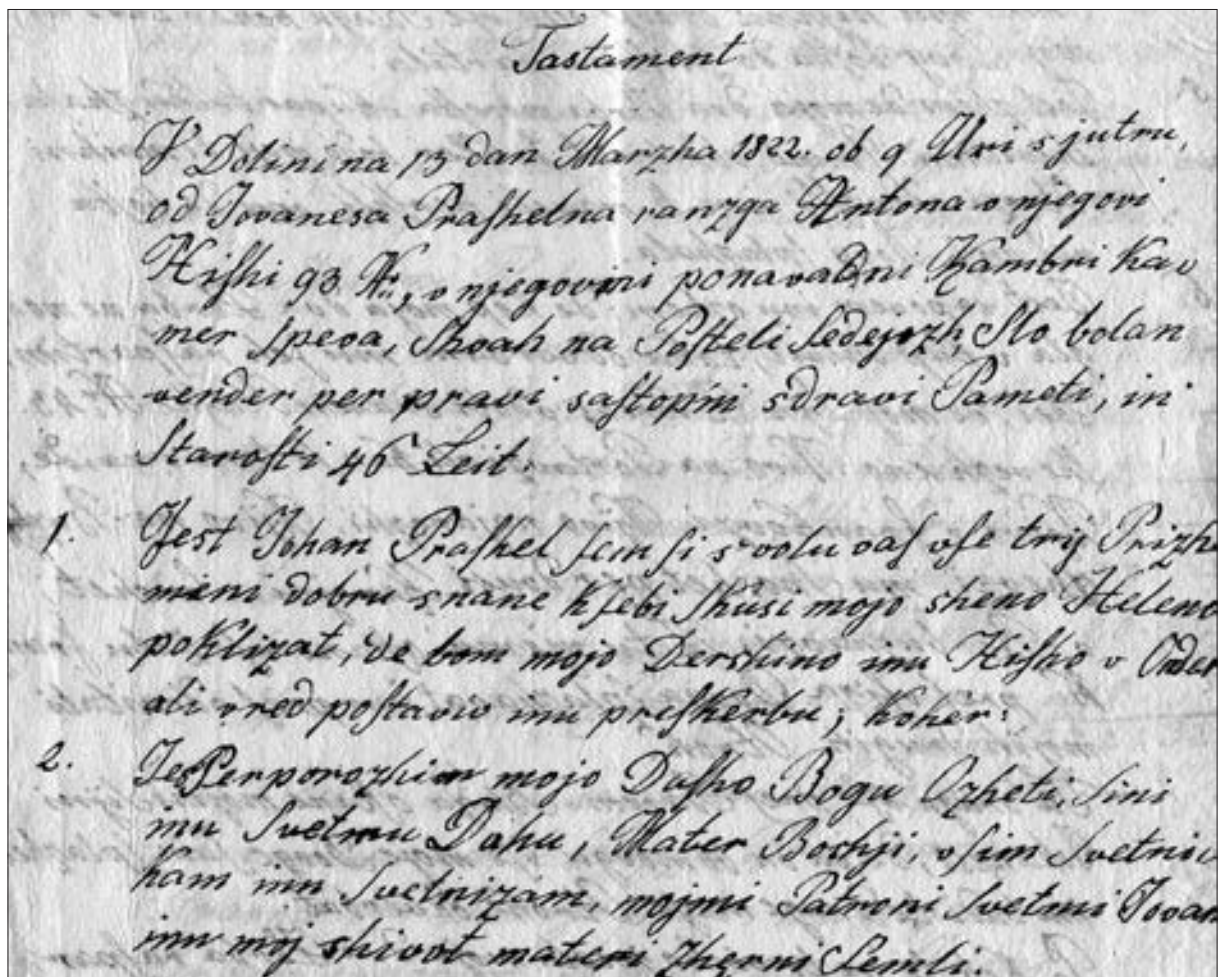 Tastament
V Dolini na 13 dan Marzha 1822. ob 9 Uri sjutru,
od Jovanesa Praſhelna ranzga Antona v njegovi
Hiſhi 93 N:, v njegovini ponavadni Kambri Kau
mer ſpeva, Skoah na Poſteli ſedejozh, Slo bolan
vender per pravi saſtopni sdravi Pameti, in
Staroſti 46 Leit.
1. Jest Johan Praſhel ſem ſi s volu vaſ vſe trij Prizh
meni dobru snane kſebi ſkusi mojo sheno Heleno
poklizat, de bom mojo Dershino inu Hiſho v Order
ali vred poſtaviv inu preſkerbu; koher:
2. Jeſt Perporozhim mojo Duſho Bogu Ozheti, Sini
inu Svetmu Duhu, Mater Boshji, vſim Svetni
kam inu Svetnizam, mojmi Patroni Svetmi Jovan
inu moj shivot materi zherni Semli.